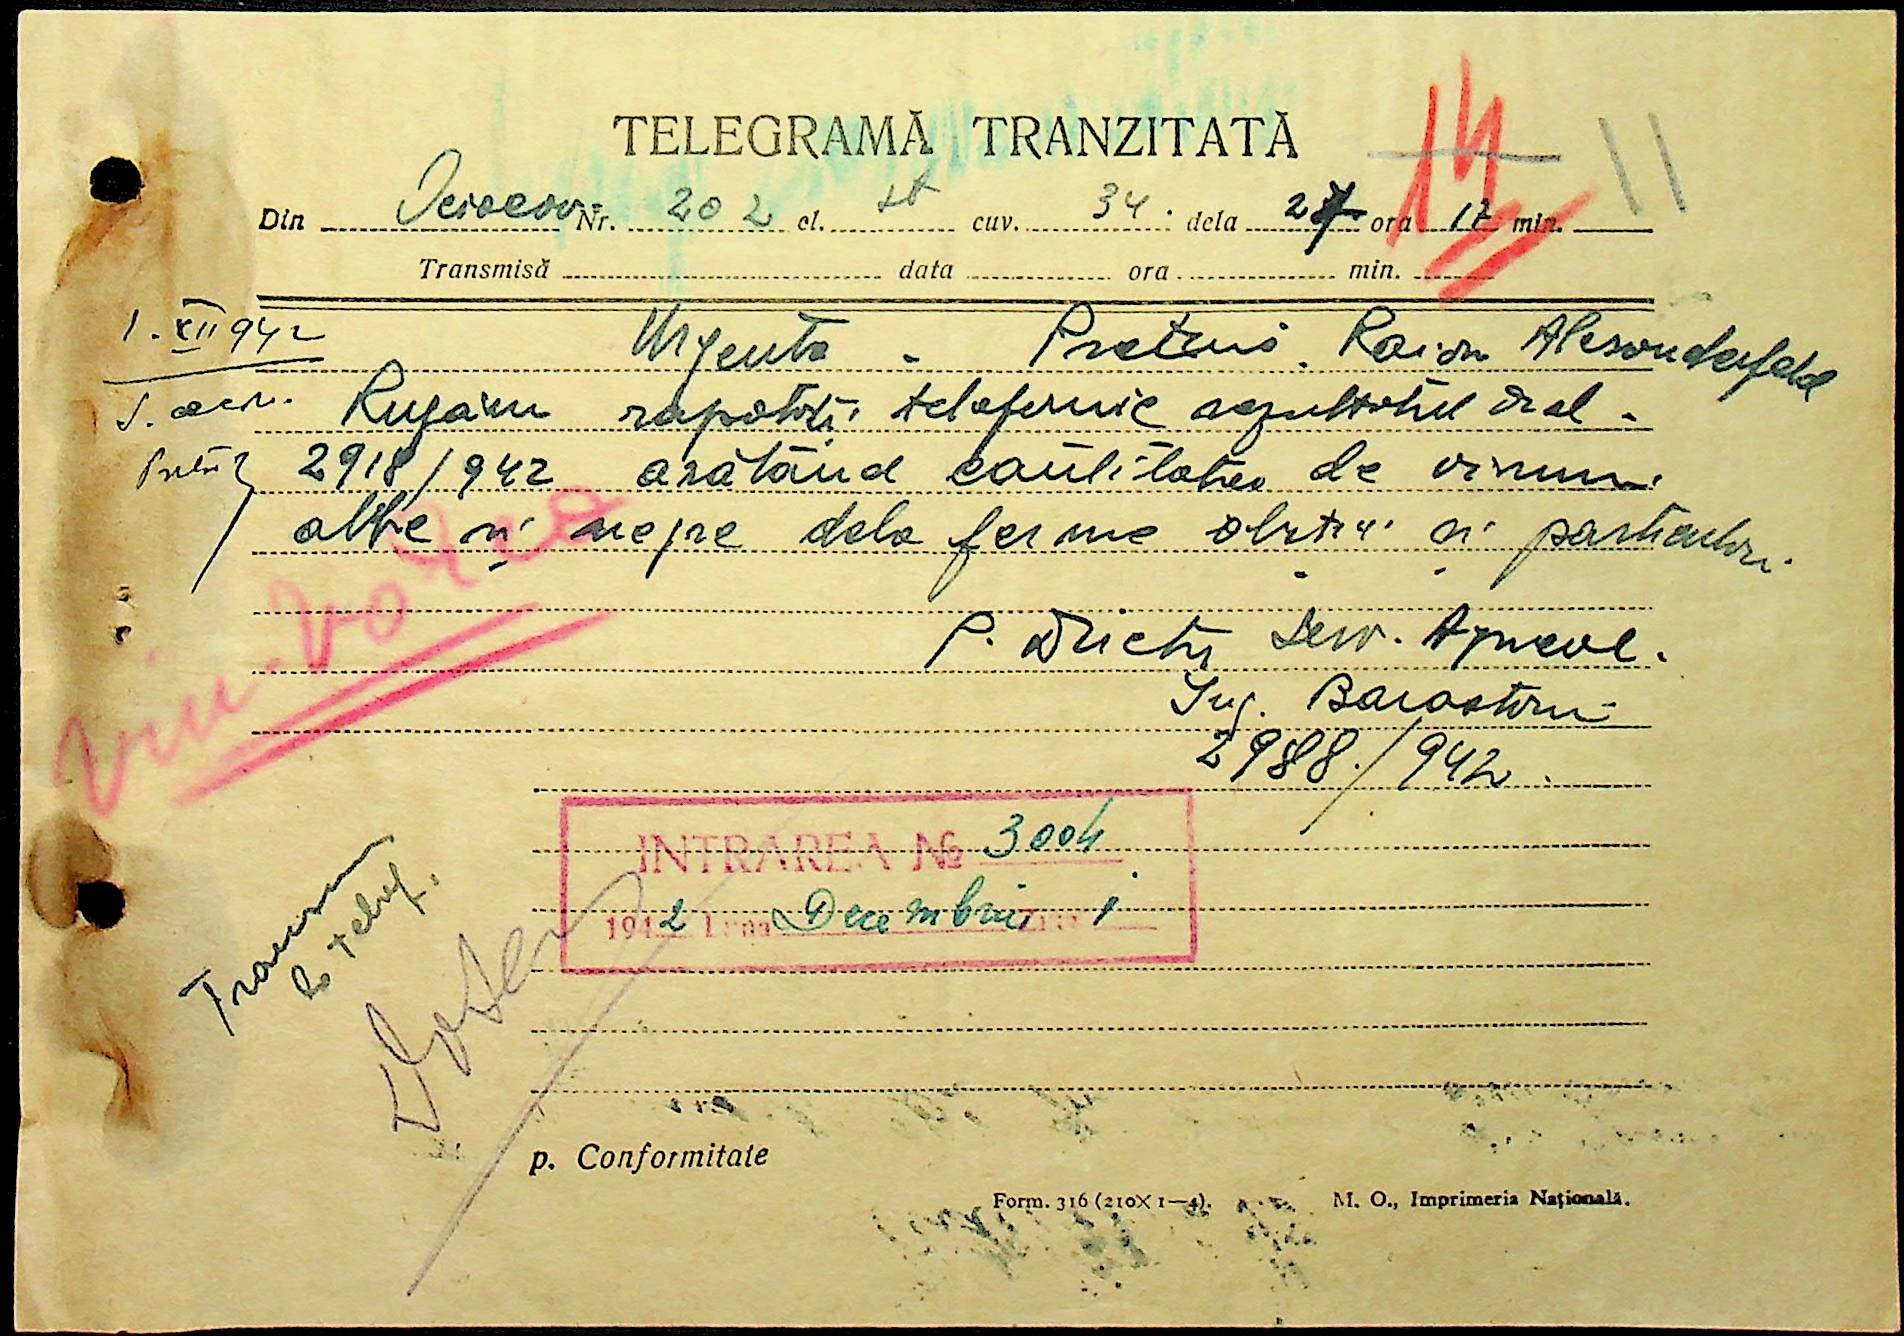 TELEGRAMĂ TRANZITATĂ
14 11
Din Nr. 202 cl. st cuv. 34 dela 27 ora 17 min.
Transmisă data ora min.
1. XII 942
Urgenta - Pretura Raion Alexanderfeld
Rugăm raportați telefonic rezultatul ord.
2918/942 arătând cantitatea de vinuri
albe și negre dela ferme obștii și particulari.
P. Direct. Serv. Agricol.
Ing.
2988/942
Vin
INTRAREA № 3004
1942 Luna Decembrie Ziua 1
Transm
la telef.
Dosar
p. Conformitate
Form. 316 (210X 1—4). M. O., Imprimeria Naţională.